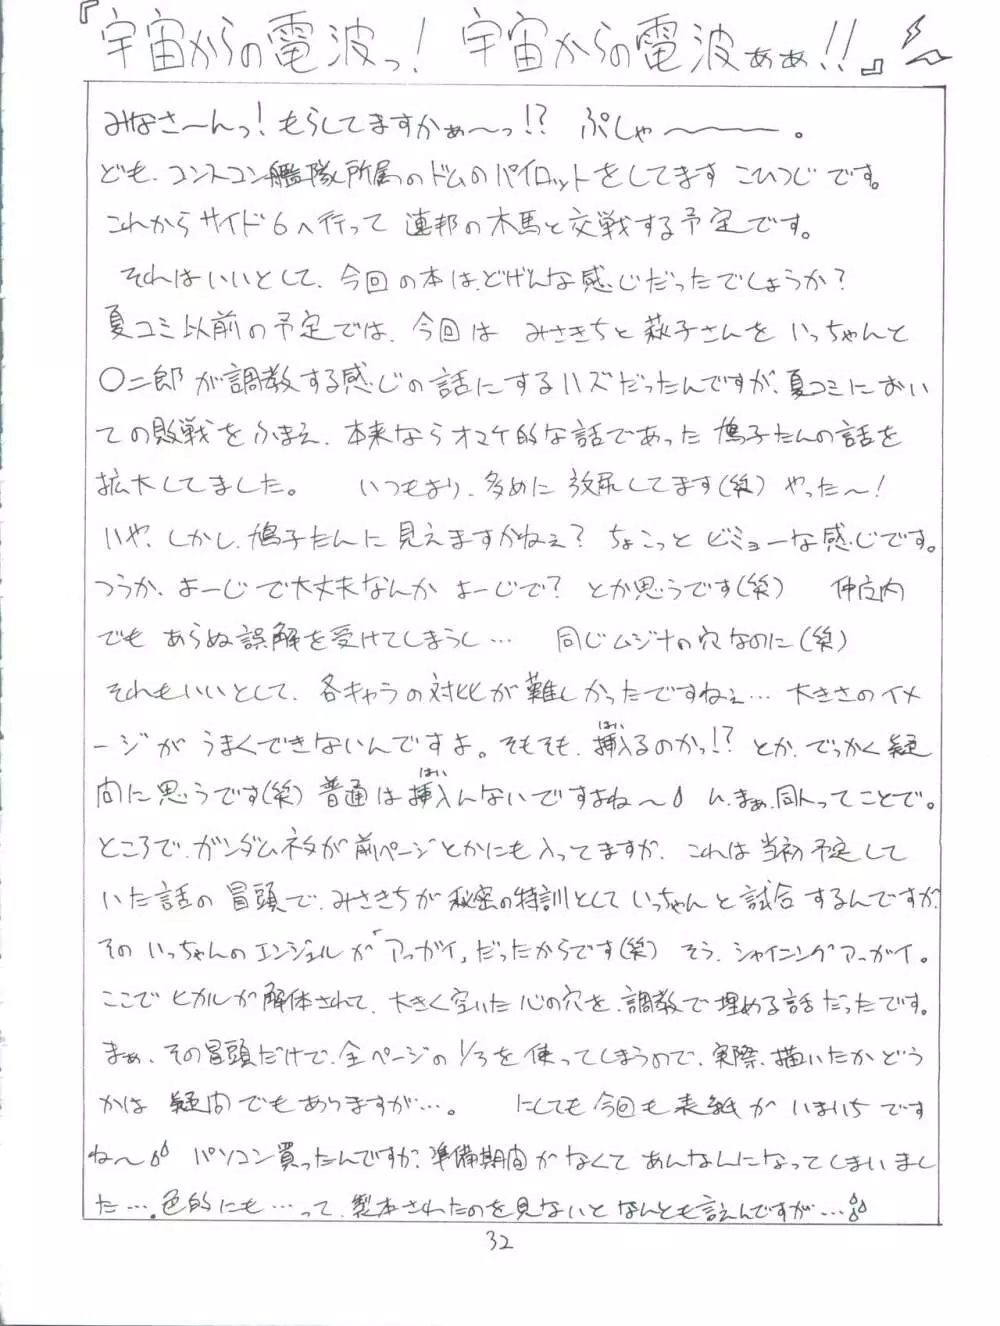 『宇宙からの電波っ! 宇宙からの電波ぁぁ!!』
みなさーんっ!もらしてますかぁ〜っ!? ぷしゃ〜〜〜。
ども、コンスコン艦隊所属のドムのパイロットをしてます こひつじです。
これからサイド6へ行って 連邦の木馬と交戦する予定です。
それはいいとして、今回の本は、どげんな感じだったでしょうか?
夏コミ以前の予定では、今回は みさきちと萩子さんを いっちゃんと
〇二郎が調教する感じの話にするハズだったんですが、夏コミにおい
ての敗戦をふまえ、本来ならオマケ的な話であった 鳩子たんの話を
拡大してました。 いつもより、多めに 放尿してます(笑) やった〜!
いや、しかし、鳩子たんに見えますかねぇ? ちょこっと ビミョーな感じです。
つうか、よーじで大丈夫なんか よーじで? とか思うです(笑) 仲間内
でも あらぬ誤解を受けてしまうし… 同じムジナの穴なのに(笑)
それもいいとして、各キャラの対比が難しかったですねぇ… 大きさのイメ
ージが うまくできないんですよ。そもそも、挿入るのかっ!? とか、でっかく疑
はい
問に思うです(笑) 普通は挿入んないですよね〜 ん、まぁ、同人ってことで。
はい
ところで、ガンダムネタが前ページとかにも入ってますが、これは当初予定して
いた話の冒頭で、みさきちが秘密の特訓としていっちゃんと試合するんですが、
そのいっちゃんのエンジェルが「アッガイ」だったからです(笑) そう、シャイニングアッガイ。
ここでヒカルが解体されて、大きく空いた心の穴を、調教で埋める話だったです。
まぁ、その冒頭だけで、全ページの1/3を使ってしまうので、実際、描いたかどう
かは 疑問でもありますが…。 にしても今回も表紙がいまいちです
ね〜 パソコン買ったんですが、準備期間がなくてあんなんになってしまいまし
た…。色的にも…って、製本されたのを見ないとなんとも言えんですが…
32